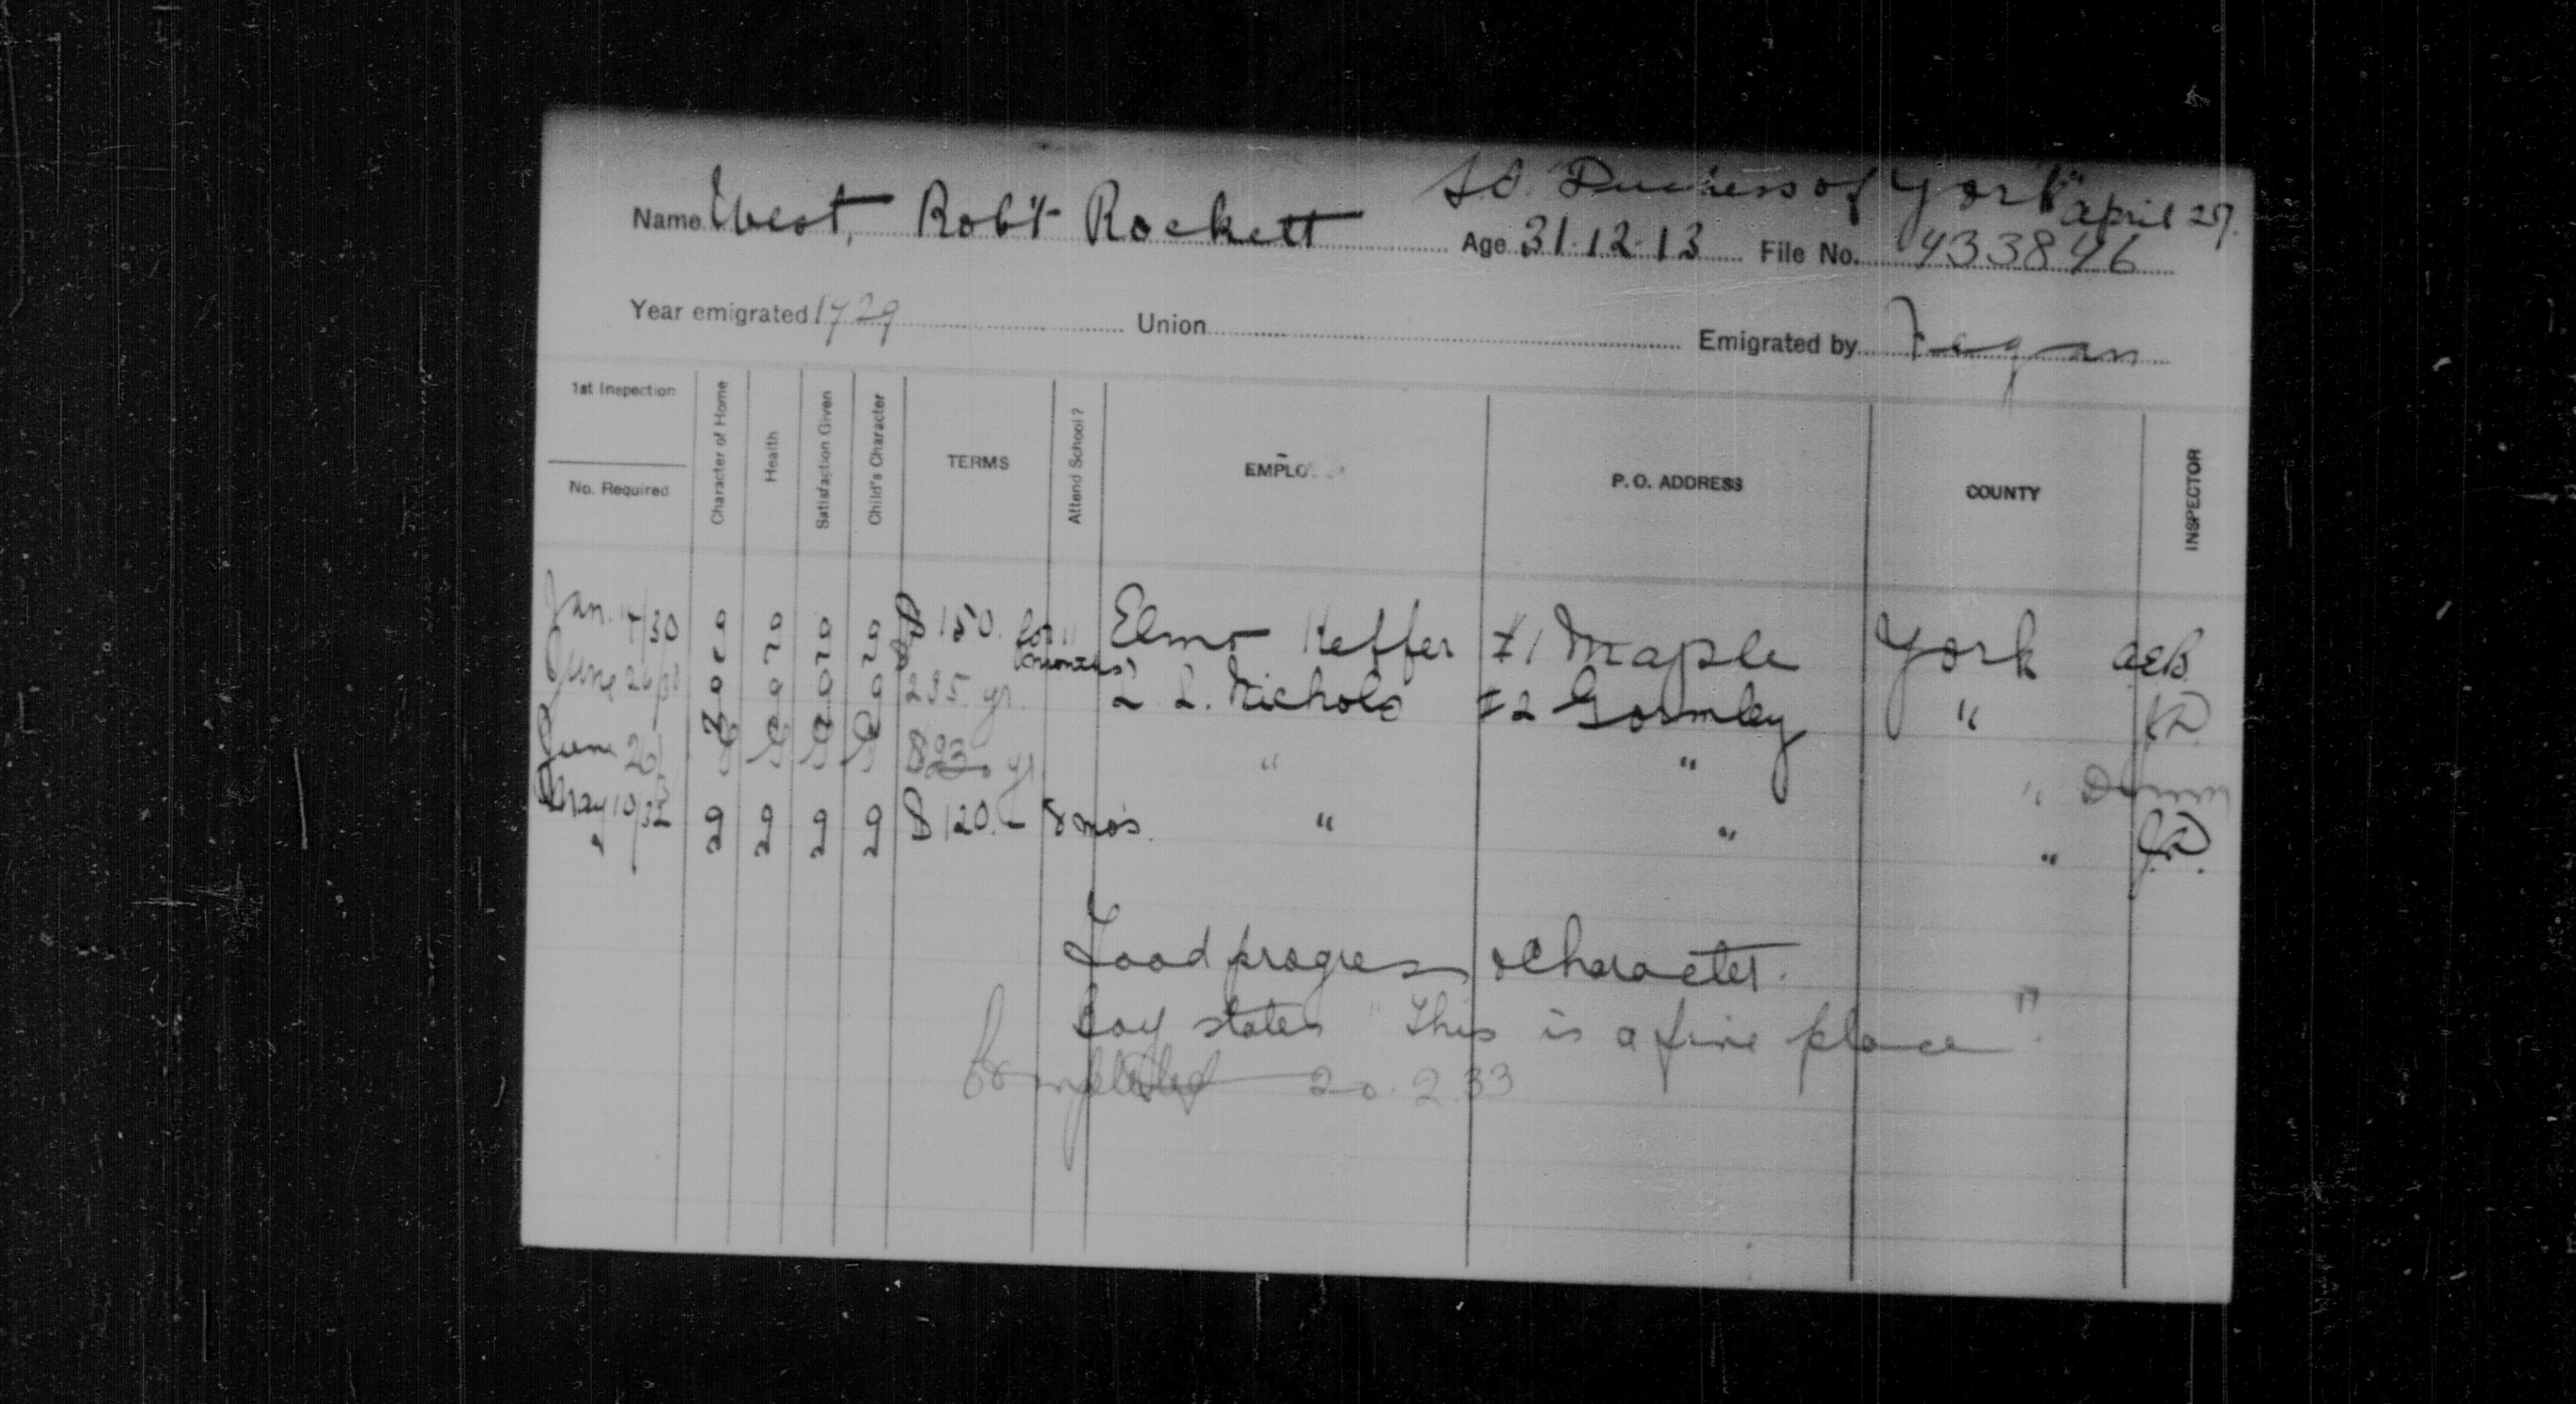 S.S. "Duchess of York" April 27.
Name West, Rob't Rockett Age 31.12.13 File No. 433846
Year emigrated 1929 Union Emigrated by Fegan
1st Inspection
No. Required
Character of Home
Health
Satisfaction Given
Child's Character
TERMS
Attend School?
EMPLO
P. O. ADDRESS
COUNTY
INSPECTOR
Jan. /30 g g g g $150. for 11 months Elmo Keffer #1 Maple York AEB
June 26 g g g g 235. yr. L. L. Nichols #2 Gormley "
June 26 g g g g yr " " "
May 10/32 g g g g $120.- 8 mos. " " "
Good progress & Character.
Boy states "This is a fine place".
Completed 20.2.33